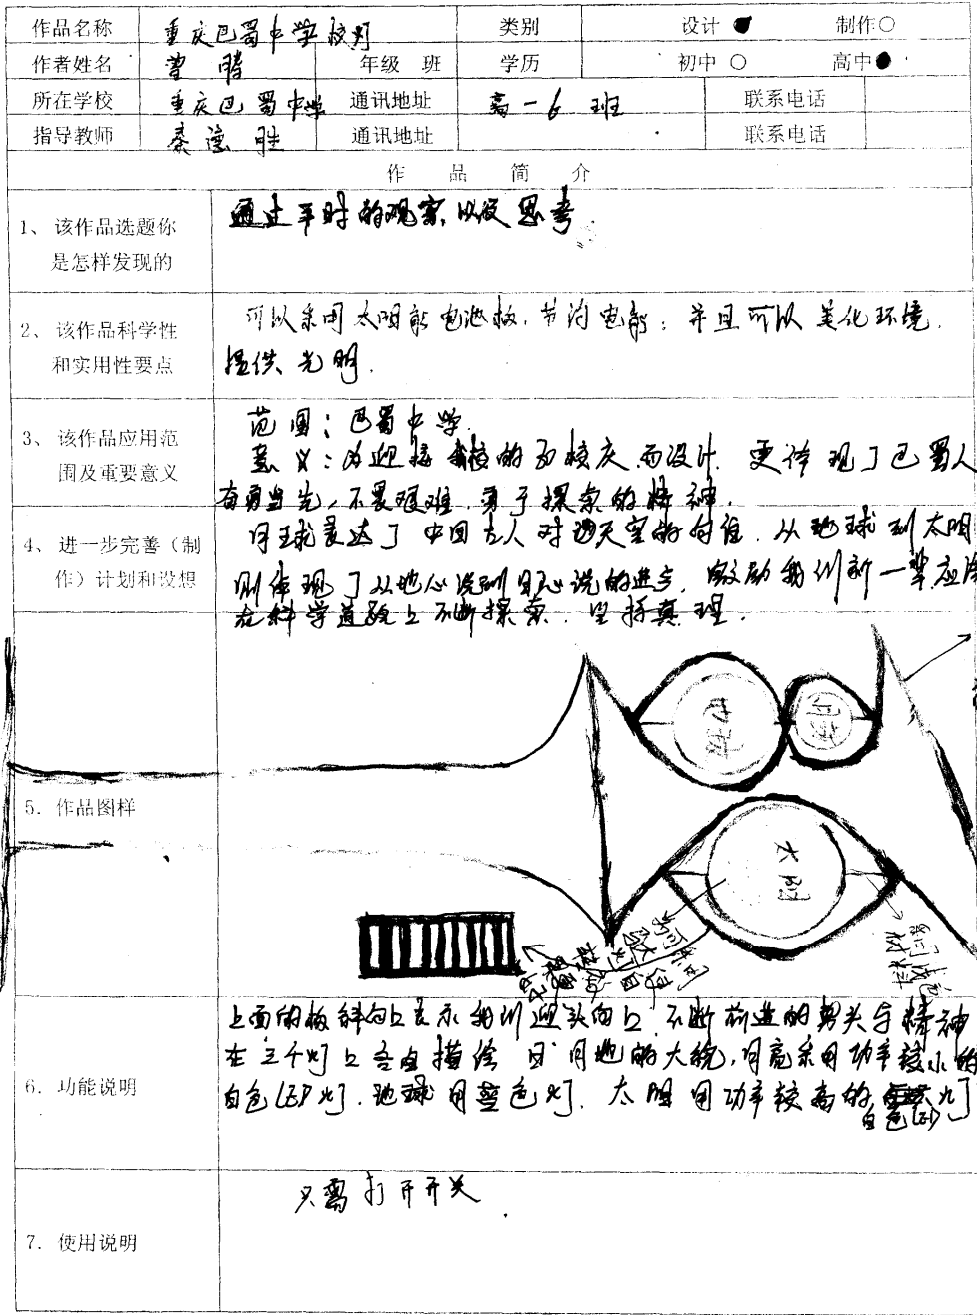 作品名称 重庆巴蜀中学校灯 类别 设计● 制作○
作者姓名 曾腾 年级 班 学历 初中○ 高中●
所在学校 重庆巴蜀中学 通讯地址 高一6班 联系电话
指导教师 秦德胜 通讯地址 联系电话
作品简介
1、该作品选题你
是怎样发现的
通过平时的观察,以及思考
2、该作品科学性
和实用性要点
可以采用太阳能电池板,节约电能;并且可以美化环境.
提供光明.
3、该作品应用范
围及重要意义
范围:巴蜀中学.
意义:为迎接我校的校庆,而设计.更体现了巴蜀人
奋勇当先,不畏艰难,勇于探索的精神.
4、进一步完善(制
作)计划和设想
月球表达了中国古人对天宫的向往.从地球到太阳
则体现了从地心说到日心说的进步,激励我们新一辈应
在科学道路上不断探索.坚持真理.
5.作品图样
地球
月球
太阳
6.功能说明
上面的板斜向上表示我们迎头向上,不断前进的势头与精神
在三个灯上各自描绘日月地的大貌,月亮采用功率较小的
白色LED灯.地球用蓝色灯.太阳用功率较高的灯
白色LED
7.使用说明
只需打开开关